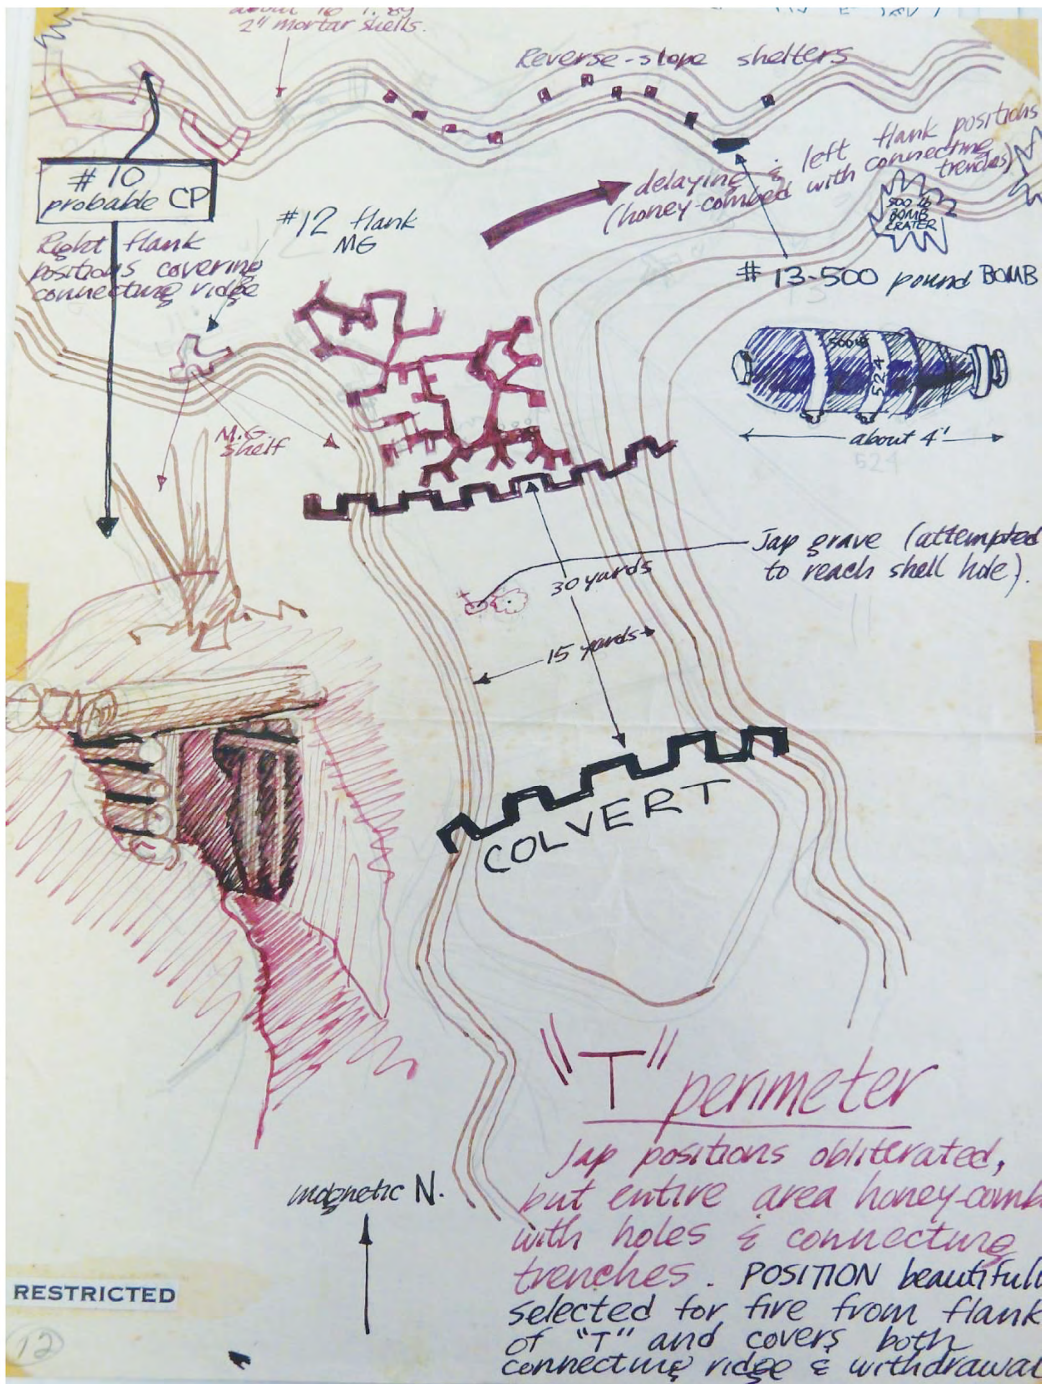 about 16
2" mortar shells.
Reverse-slope shelters
delaying & left flank positions
(honey-combed with connecting
trenches)
# 10
probable CP
Right flank
positions covering
connecting ridge
#12 flank
MG
500 lb
BOMB
CRATER
2
# 13-500 pound BOMB
500 lb
524
about 4'
524
M.G.
shelf
Jap grave (attempted
to reach shell hole).
30 yards
15 yards
COLVERT
"T" perimeter
Jap positions obliterated,
but entire area honey-comb
with holes & connecting
trenches. POSITION beautifull
selected for fire from flank
of "T" and covers both
connecting ridge & withdrawal
magnetic N.
RESTRICTED
12